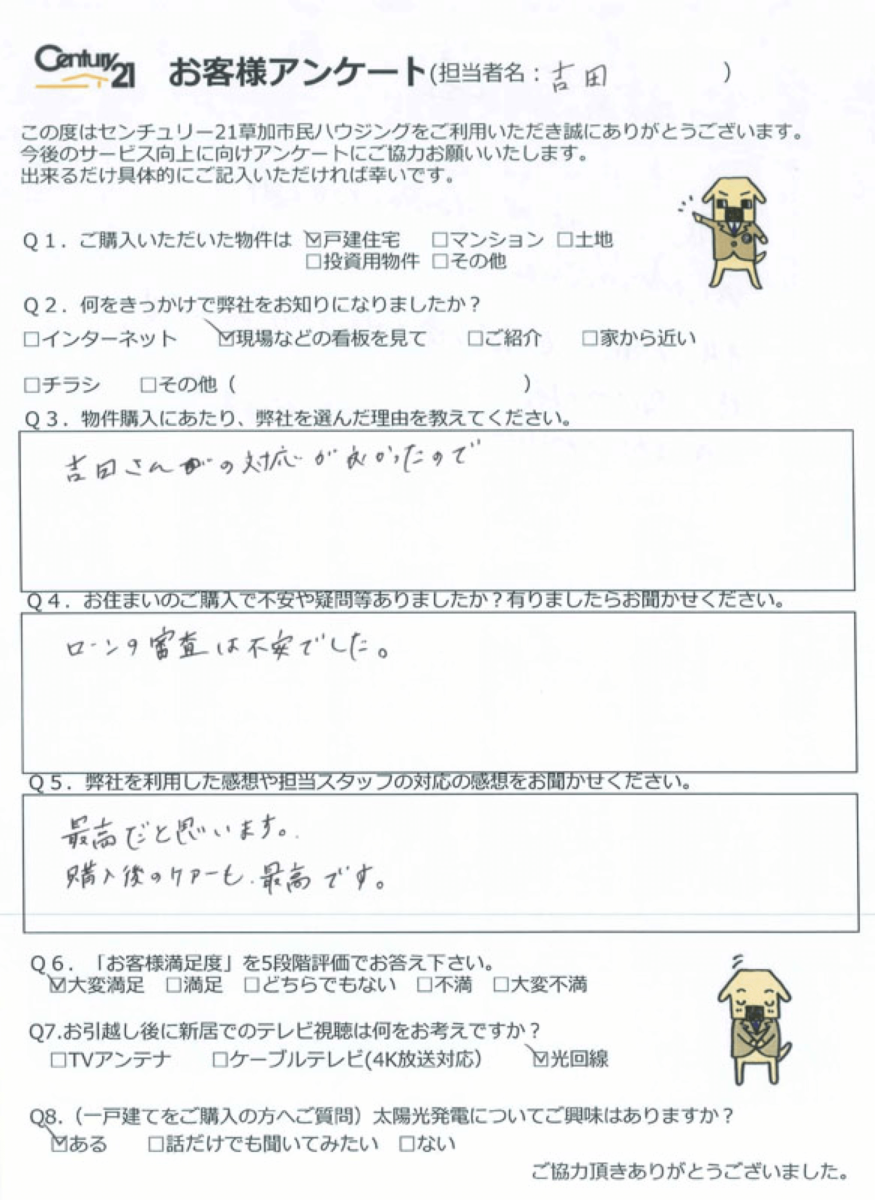 Century 21 お客様アンケート(担当者名：吉田　　　)
この度はセンチュリー21草加市民ハウジングをご利用いただき誠にありがとうございます。
今後のサービス向上に向けアンケートにご協力お願いいたします。
出来るだけ具体的にご記入いただければ幸いです。
Q１．ご購入いただいた物件は ☑戸建住宅 □マンション □土地
□投資用物件 □その他
Q２．何をきっかけで弊社をお知りになりましたか？
□インターネット ☑現場などの看板を見て □ご紹介 □家から近い
□チラシ □その他（　　　）
Q３．物件購入にあたり、弊社を選んだ理由を教えてください。
吉田さんの対応が良かったので
Q４．お住まいのご購入で不安や疑問等ありましたか？有りましたらお聞かせください。
ローンの審査は不安でした。
Q５．弊社を利用した感想や担当スタッフの対応の感想をお聞かせください。
最高だと思います。
購入後のケアーも、最高です。
Q６．「お客様満足度」を5段階評価でお答え下さい。
☑大変満足 □満足 □どちらでもない □不満 □大変不満
Q7.お引越し後に新居でのテレビ視聴は何をお考えですか？
□TVアンテナ □ケーブルテレビ(4K放送対応） ☑光回線
Q8.（一戸建てをご購入の方へご質問）太陽光発電についてご興味はありますか？
☑ある □話だけでも聞いてみたい □ない
ご協力頂きありがとうございました。